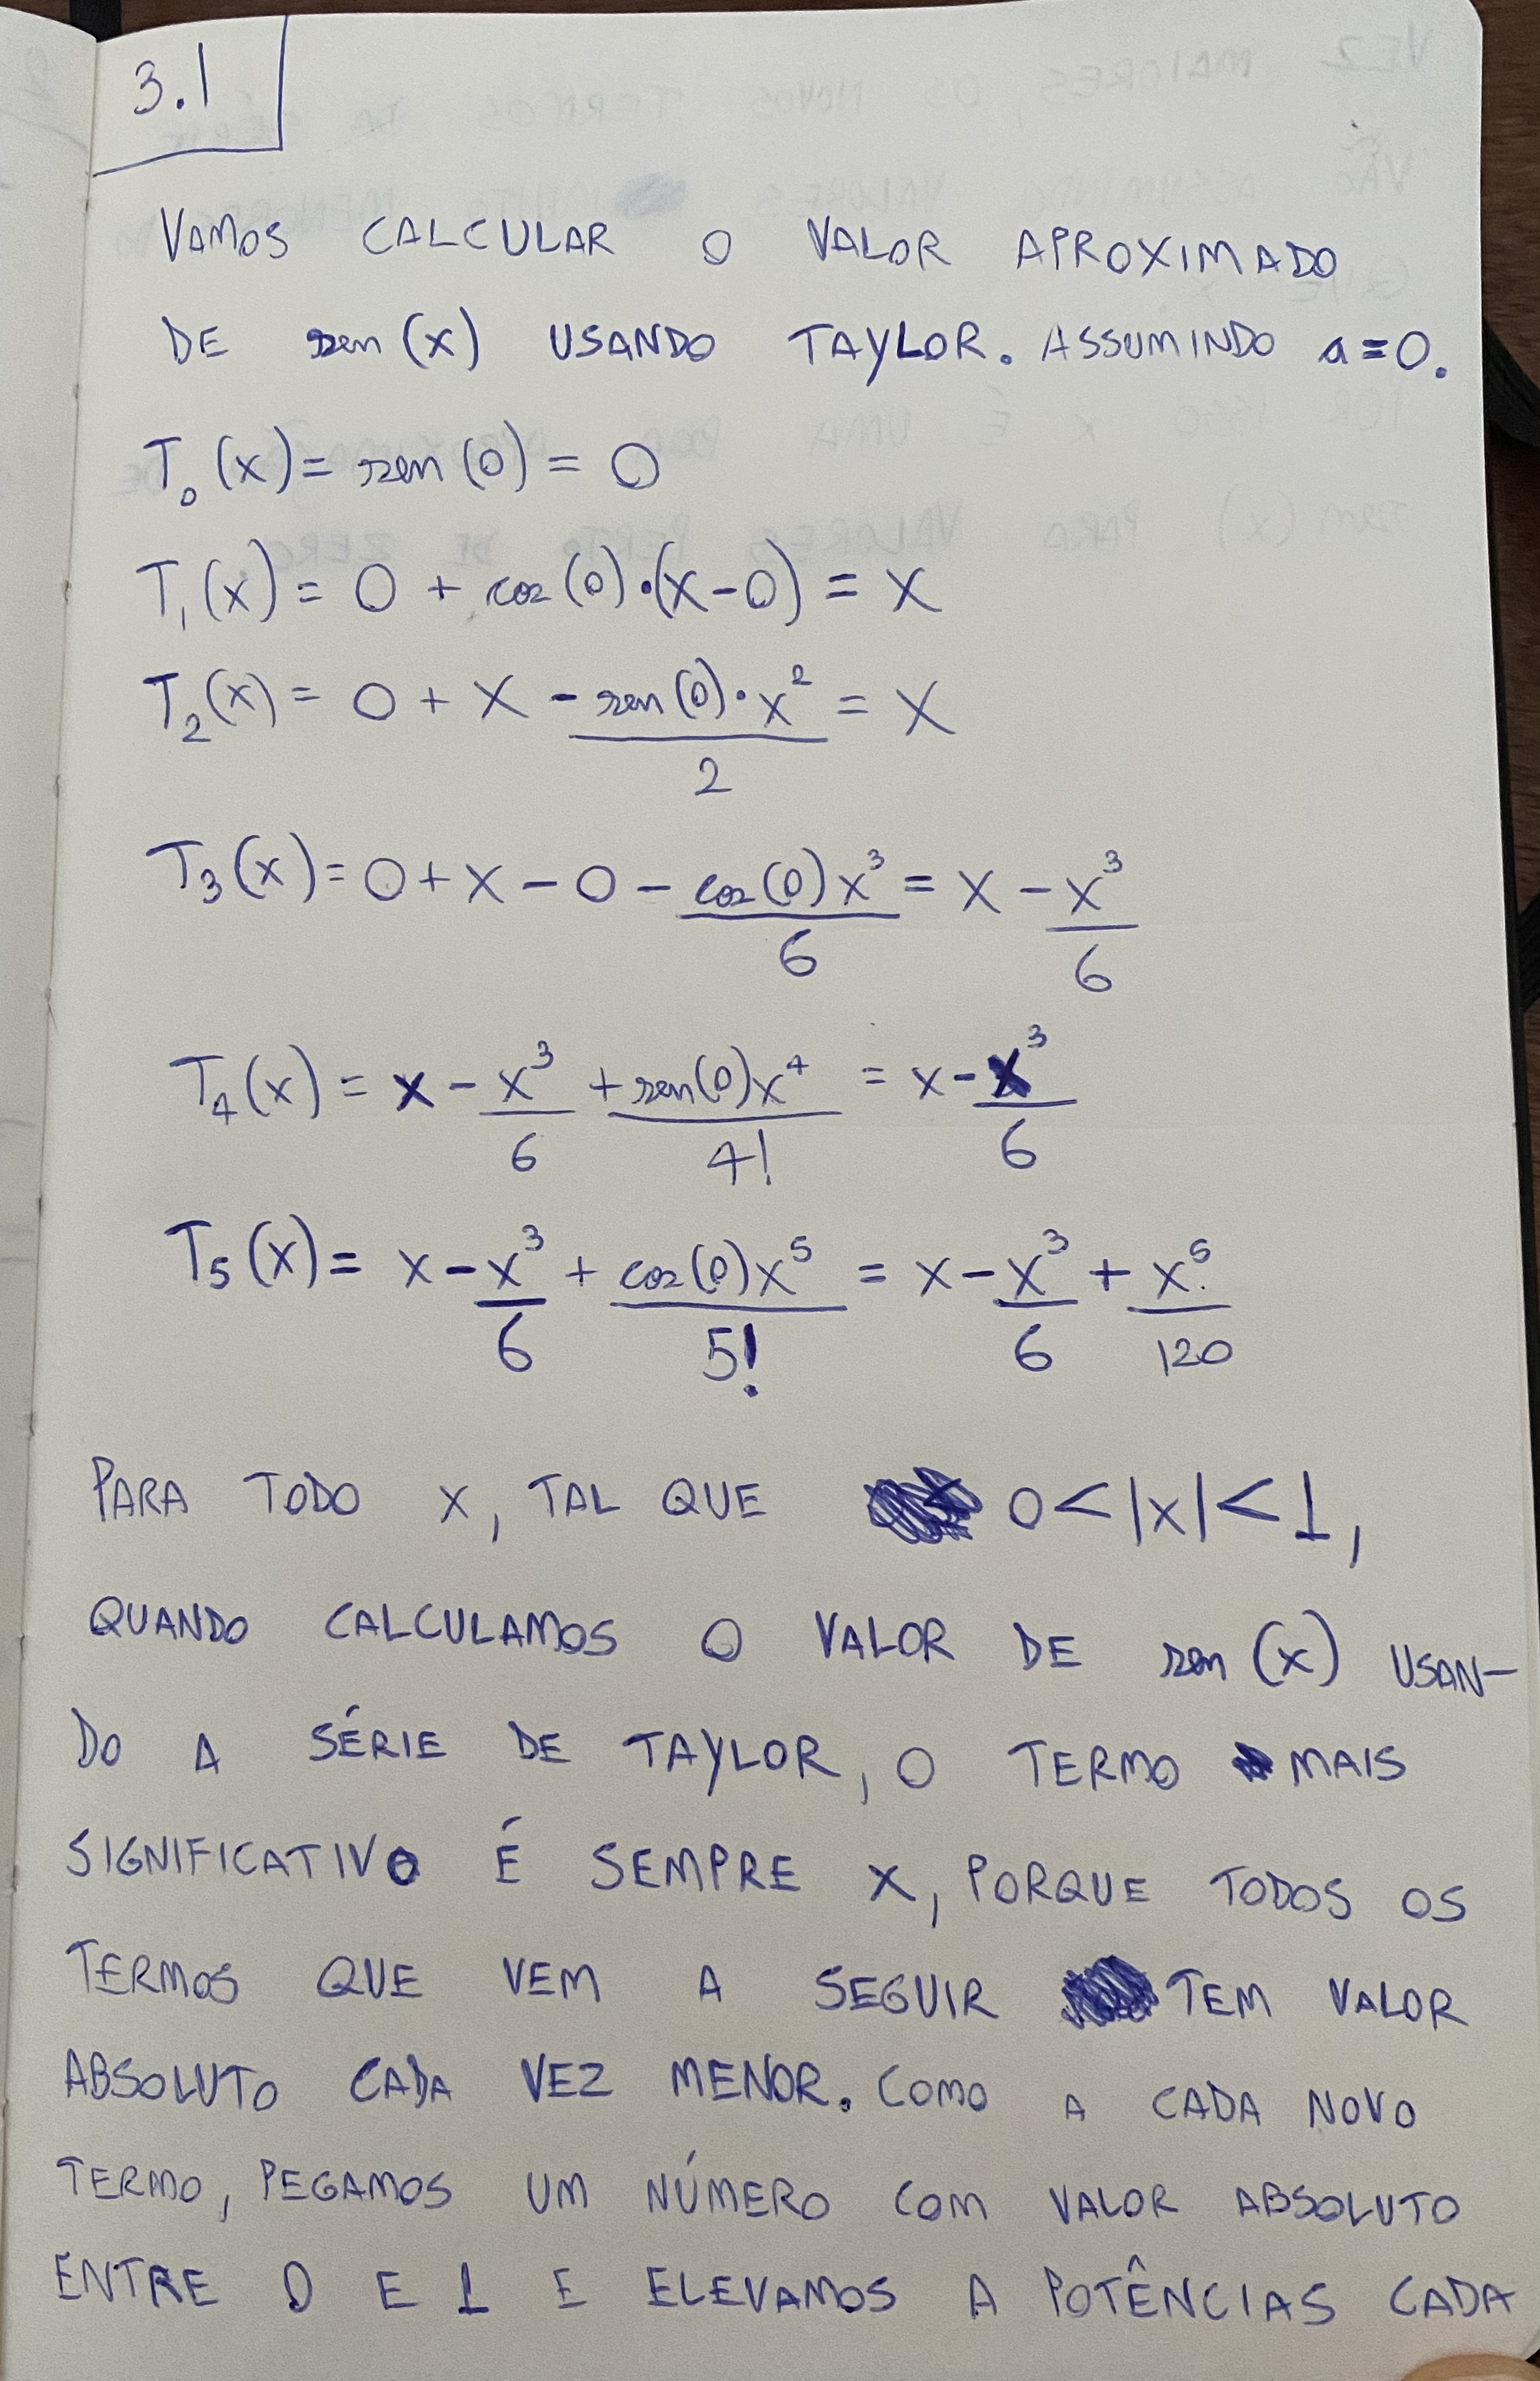 3.1
VAMOS CALCULAR O VALOR APROXIMADO
DE sen(x) USANDO TAYLOR. ASSUMINDO a=0.
T₀(x) = sen(0) = 0
T₁(x) = 0 + cos(0)·(x-0) = x
T₂(x) = 0 + x - sen(0)·x²/2 = x
T₃(x) = 0 + x - 0 - cos(0)x³/6 = x - x³/6
T₄(x) = x - x³/6 + sen(0)x⁴/4! = x - x³/6
T₅(x) = x - x³/6 + cos(0)x⁵/5! = x - x³/6 + x⁵/120
PARA TODO x, TAL QUE 0<|x|<1,
QUANDO CALCULAMOS O VALOR DE sen(x) USAN-
DO A SÉRIE DE TAYLOR, O TERMO MAIS
SIGNIFICATIVO É SEMPRE x, PORQUE TODOS OS
TERMOS QUE VEM A SEGUIR TEM VALOR
ABSOLUTO CADA VEZ MENOR. COMO A CADA NOVO
TERMO, PEGAMOS UM NÚMERO COM VALOR ABSOLUTO
ENTRE 0 E 1 E ELEVAMOS A POTÊNCIAS CADA